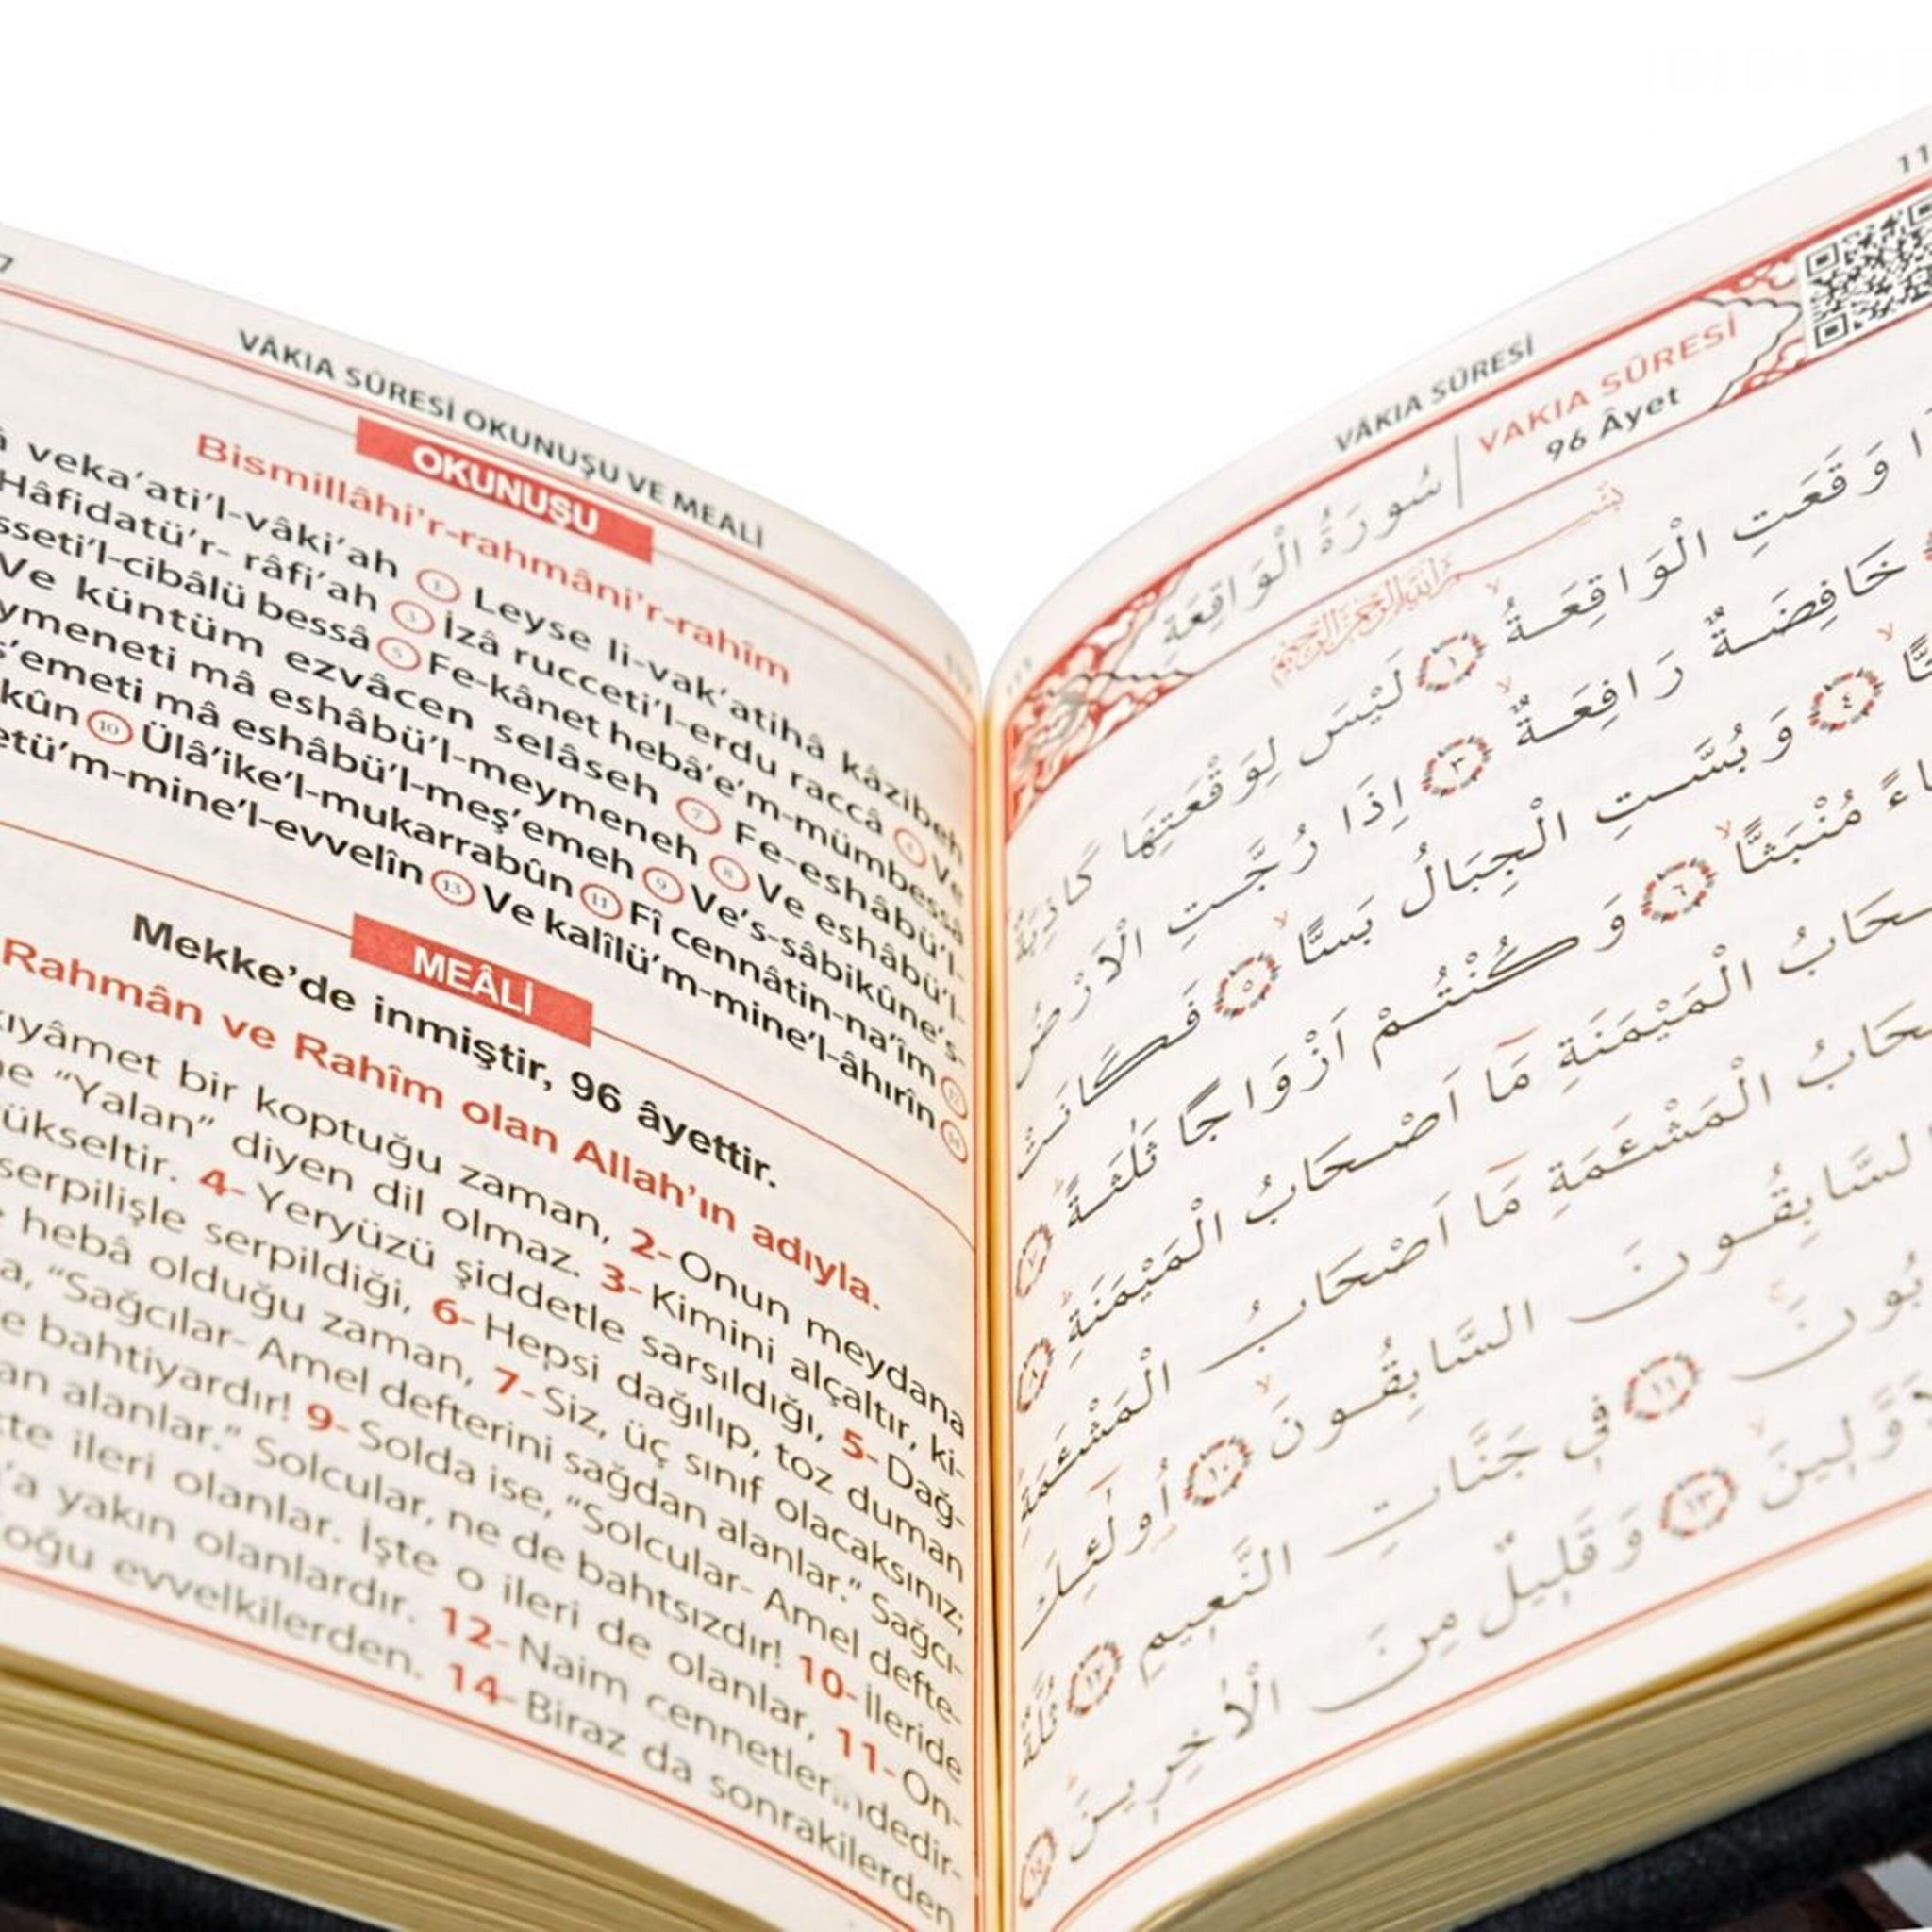 VÂKIA SÛRESİ OKUNUŞU VE MEALİ
OKUNUŞU
Bismillâhi’r-rahmâni’r-rahîm
veka’ati’l-vâki’ah 1 Leyse li-vak’atihâ kâzibeh
Hâfidatü’r- râfi’ah 3 İzâ rucceti’l-erdu raccâ 4 Ve
sseti’l-cibâlü bessâ 5 Fe-kânet hebâ’e’m-mümbessâ
Ve küntüm ezvâcen selâseh 7 Fe-eshâbü’l-
ymeneti mâ eshâbü’l-meymeneh 8 Ve eshâbü’l-
ş’emeti mâ eshâbü’l-meş’emeh 9 Ve’s-sâbikûne’s-
kûn 10 Ülâ’ike’l-mukarrabûn 11 Fî cennâtin-na’îm 12
etü’m-mine’l-evvelîn 13 Ve kalîlü’m-mine’l-âhırîn 14
MEÂLİ
Mekke’de inmiştir, 96 âyettir.
Rahmân ve Rahîm olan Allah’ın adıyla.
kıyâmet bir koptuğu zaman, 2- Onun meydana
ne “Yalan” diyen dil olmaz. 3- Kimini alçaltır, ki-
ükseltir. 4- Yeryüzü şiddetle sarsıldığı, 5- Dağ-
serpilişle serpildiği, 6- Hepsi dağılıp, toz duman
hebâ olduğu zaman, 7- Siz, üç sınıf olacaksınız;
a, “Sağcılar- Amel defterini sağdan alanlar.” Sağcı-
e bahtiyardır! 9- Solda ise, “Solcular- Amel defte-
an alanlar.” Solcular, ne de bahtsızdır! 10- İleride
kte ileri olanlar. İşte o ileri de olanlar, 11- On-
’a yakın olanlardır. 12- Naim cennetlerindedir-
oğu evvelkilerden. 14- Biraz da sonrakilerden
VÂKIA SÛRESİ
VAKIA SÛRESİ
96 Âyet
سُورَةُ الْوَاقِعَةِ
بِسْمِ اللّٰهِ الرَّحْمٰنِ الرَّحِيمِ
وَقَعَتِ الْوَاقِعَةُ ١ لَيْسَ لِوَقْعَتِهَا كَاذِبَةٌ
خَافِضَةٌ رَافِعَةٌ ٣ اِذَا رُجَّتِ الْاَرْضُ
٤ وَبُسَّتِ الْجِبَالُ بَسًّا ٥ فَكَانَتْ
مُنْبَثًّا ٦ وَكُنْتُمْ اَزْوَاجًا ثَلٰثَةً ٧
الْمَيْمَنَةِ مَا اَصْحَابُ الْمَيْمَنَةِ ٨
الْمَشْـَٔمَةِ مَا اَصْحَابُ الْمَشْـَٔمَةِ
السَّابِقُونَ السَّابِقُونَ ١٠ اُولٰئِكَ
١١ فِي جَنَّاتِ النَّعِيمِ ١٢ ثُلَّةٌ
١٣ وَقَلِيلٌ مِنَ الْاٰخِرِينَ ١٤